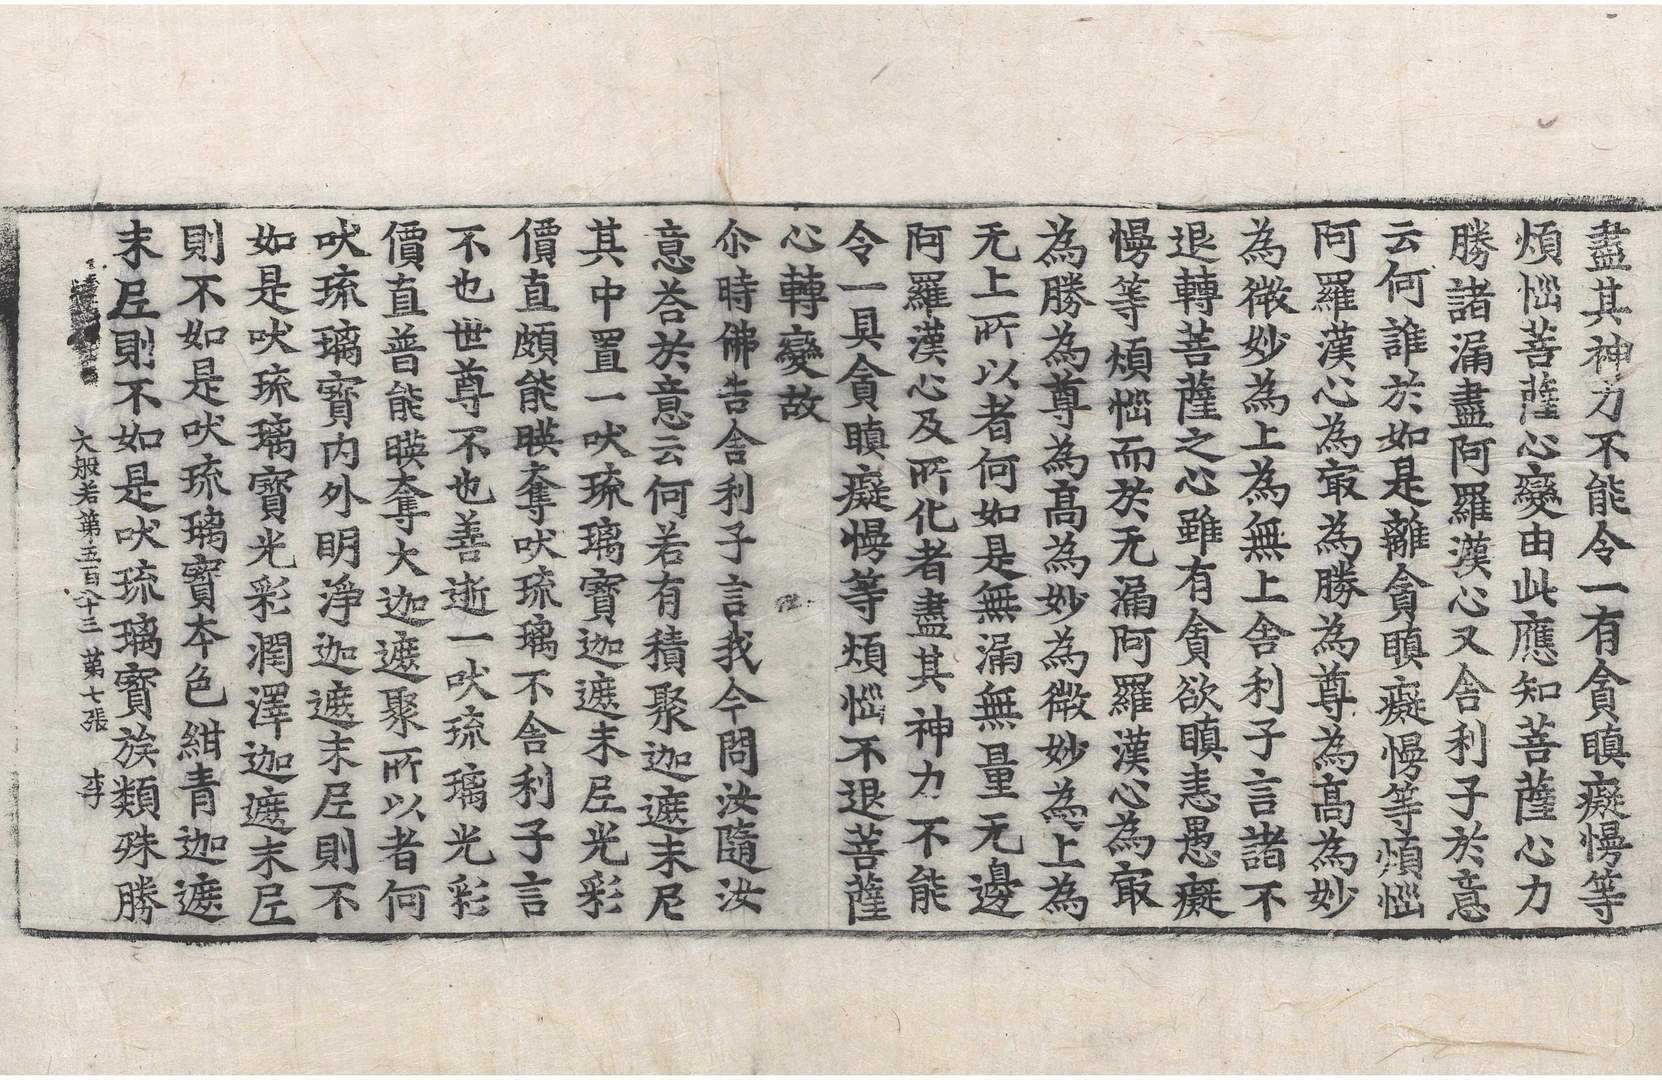 盡其神力不能令一有貪瞋癡慢等
煩惱菩薩心變由此應知菩薩心力
勝諸漏盡阿羅漢心又舍利子於意
云何誰於如是離貪瞋癡慢等煩惱
阿羅漢心為㝡為勝為尊為高為妙
為微妙為上為無上舍利子言諸不
退轉菩薩之心雖有貪欲瞋恚愚癡
慢等煩惱而於无漏阿羅漢心為㝡
為勝為尊為高為妙為微妙為上為
无上所以者何如是無漏無量无邊
阿羅漢心及所化者盡其神力不能
令一具貪瞋癡慢等煩惱不退菩薩
心轉變故
尒時佛告舍利子言我今問汝隨汝
意荅於意云何若有積聚迦遮末尼
其中置一吠琉璃寶迦遮末尼光彩
價直頗能暎奪吠琉璃不舍利子言
不也世尊不也善逝一吠琉璃光彩
價直普能暎奪大迦遮聚所以者何
吠琉璃寶內外明淨迦遮末尼則不
如是吠琉璃寶光彩潤澤迦遮末尼
則不如是吠琉璃寶本色紺青迦遮
末尼則不如是吠琉璃寶族類殊勝
大般若第五百八十三 第七張 李